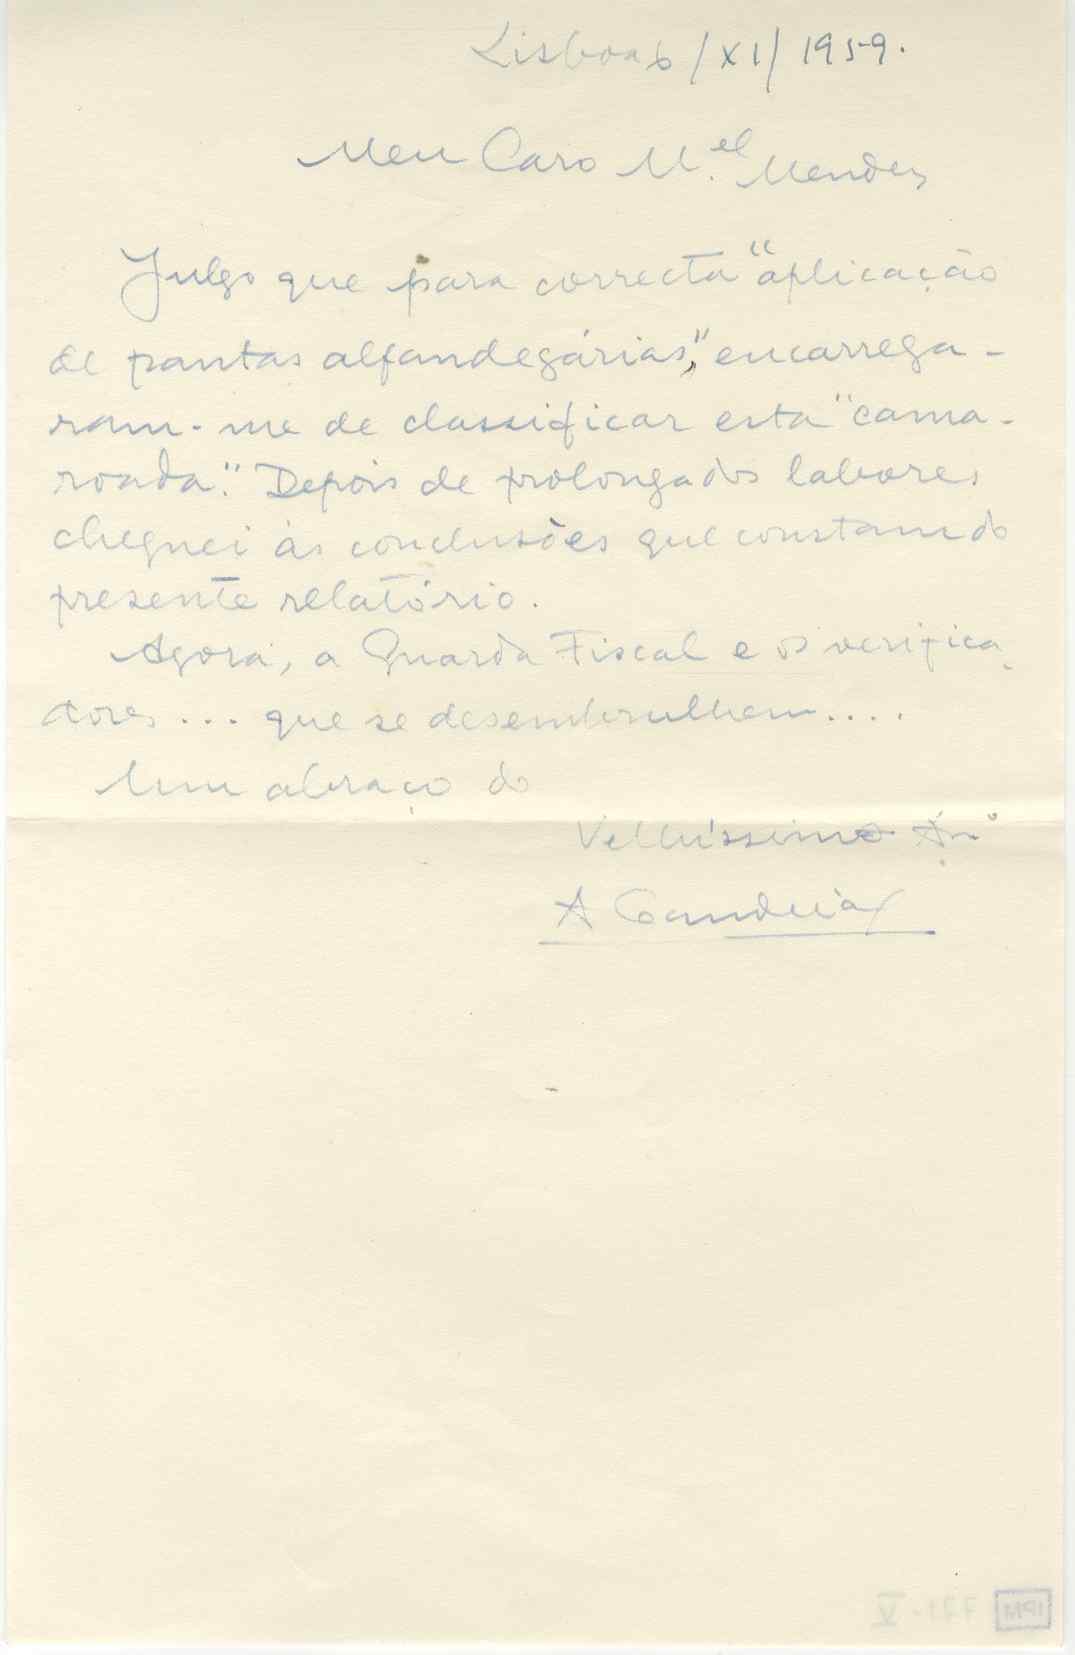 Lisboa 6/XI/1959.
Meu Caro M.el Mendes
Julgo que para correcta "aplicação
de pautas alfandegárias," encarrega-
ram-me de classificar esta "cama-
roada". Depois de prolongados labores
cheguei às conclusões que constam do
presente relatório.
Agora, a Guarda Fiscal e os verifica-
dores... que se desembrulhem....
Um abraço do
Velhíssimo Am.º
A Candeias